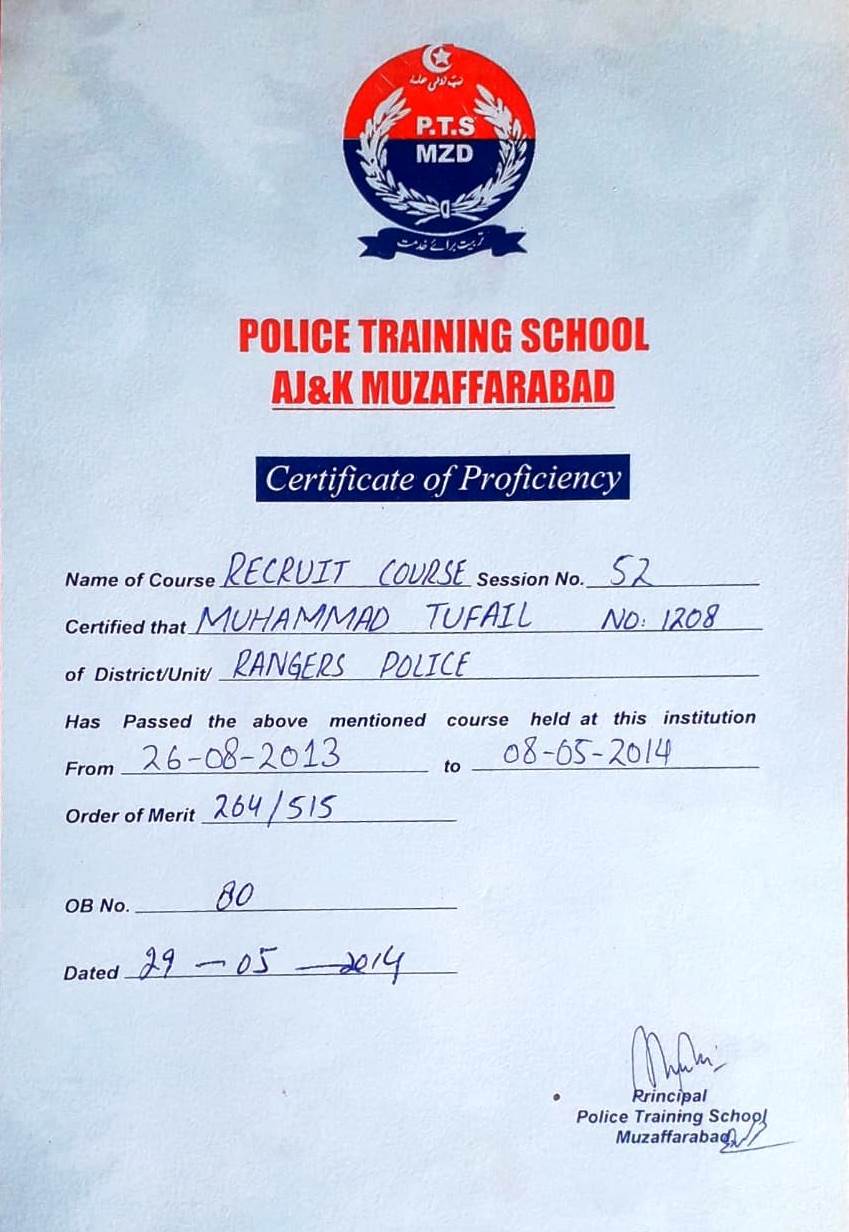 P.T.S
MZD
تربیت برائے خدمت
POLICE TRAINING SCHOOL
AJ&K MUZAFFARABAD
Certificate of Proficiency
Name of Course RECRUIT COURSE Session No. 52
Certified that MUHAMMAD TUFAIL NO: 1208
of District/Unit/ RANGERS POLICE
Has Passed the above mentioned course held at this institution
From 26-08-2013 to 08-05-2014
Order of Merit 264/515
OB No. 80
Dated 29-05-2014
Rrincipal
Police Training School
Muzaffarabad